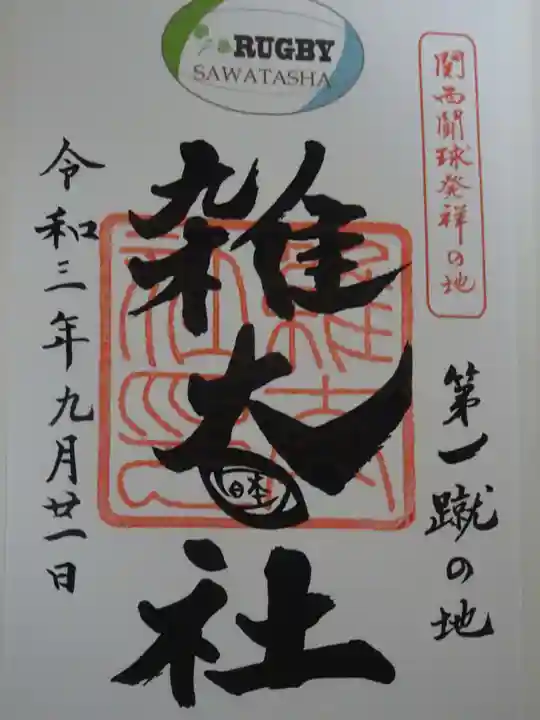 RUGBY
SAWATASHA
関西闘球発祥の地
第一蹴の地
雑太社
令和三年九月廿一日